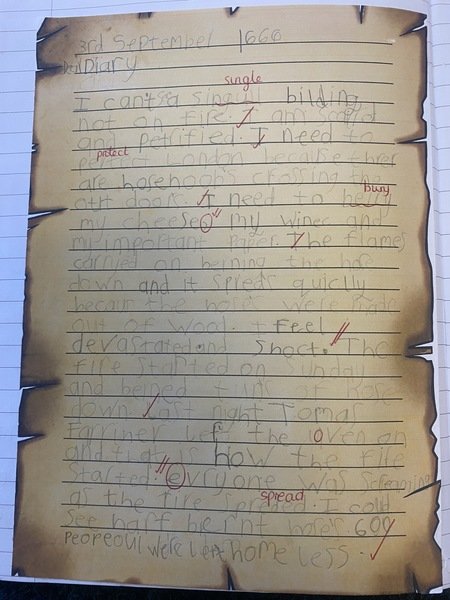 3rd September 1666
Diary
single
I cant sa singul bilding
not on fire. I am scard
and petrified. I need to
protect
London because ther
are hosehoahs crossing the
doors. I need to
bury
my cheese my wines and
my important paper. The flames
carryed on berning the hose
down and it spreds quickly
becaus the hoses were made
out of wood. I feel
devastrated and shoct. The
fire started on Sunday
and berned of hose
down Last night Tomas
Farriner lef the oven on
and that is how the fire
started. evryone was screaming
spread
as the fire spraed. I cold
see harf bernt hoses. 600
were left home less.